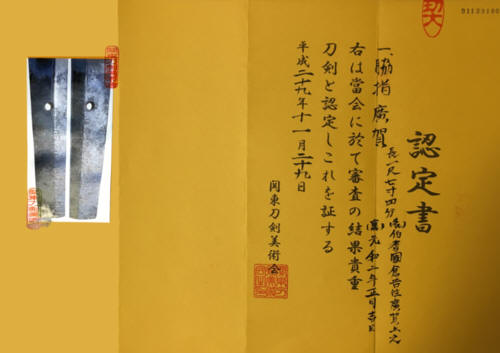 認定書
一、脇指 廣賀
長一尺七寸四分
伯耆國倉吉住廣賀
元和二年正月吉日
右は當会に於て審査の結果貴重
刀剣と認定しこれを証する
平成二十九年十一月二十九日
関東刀剣美術会